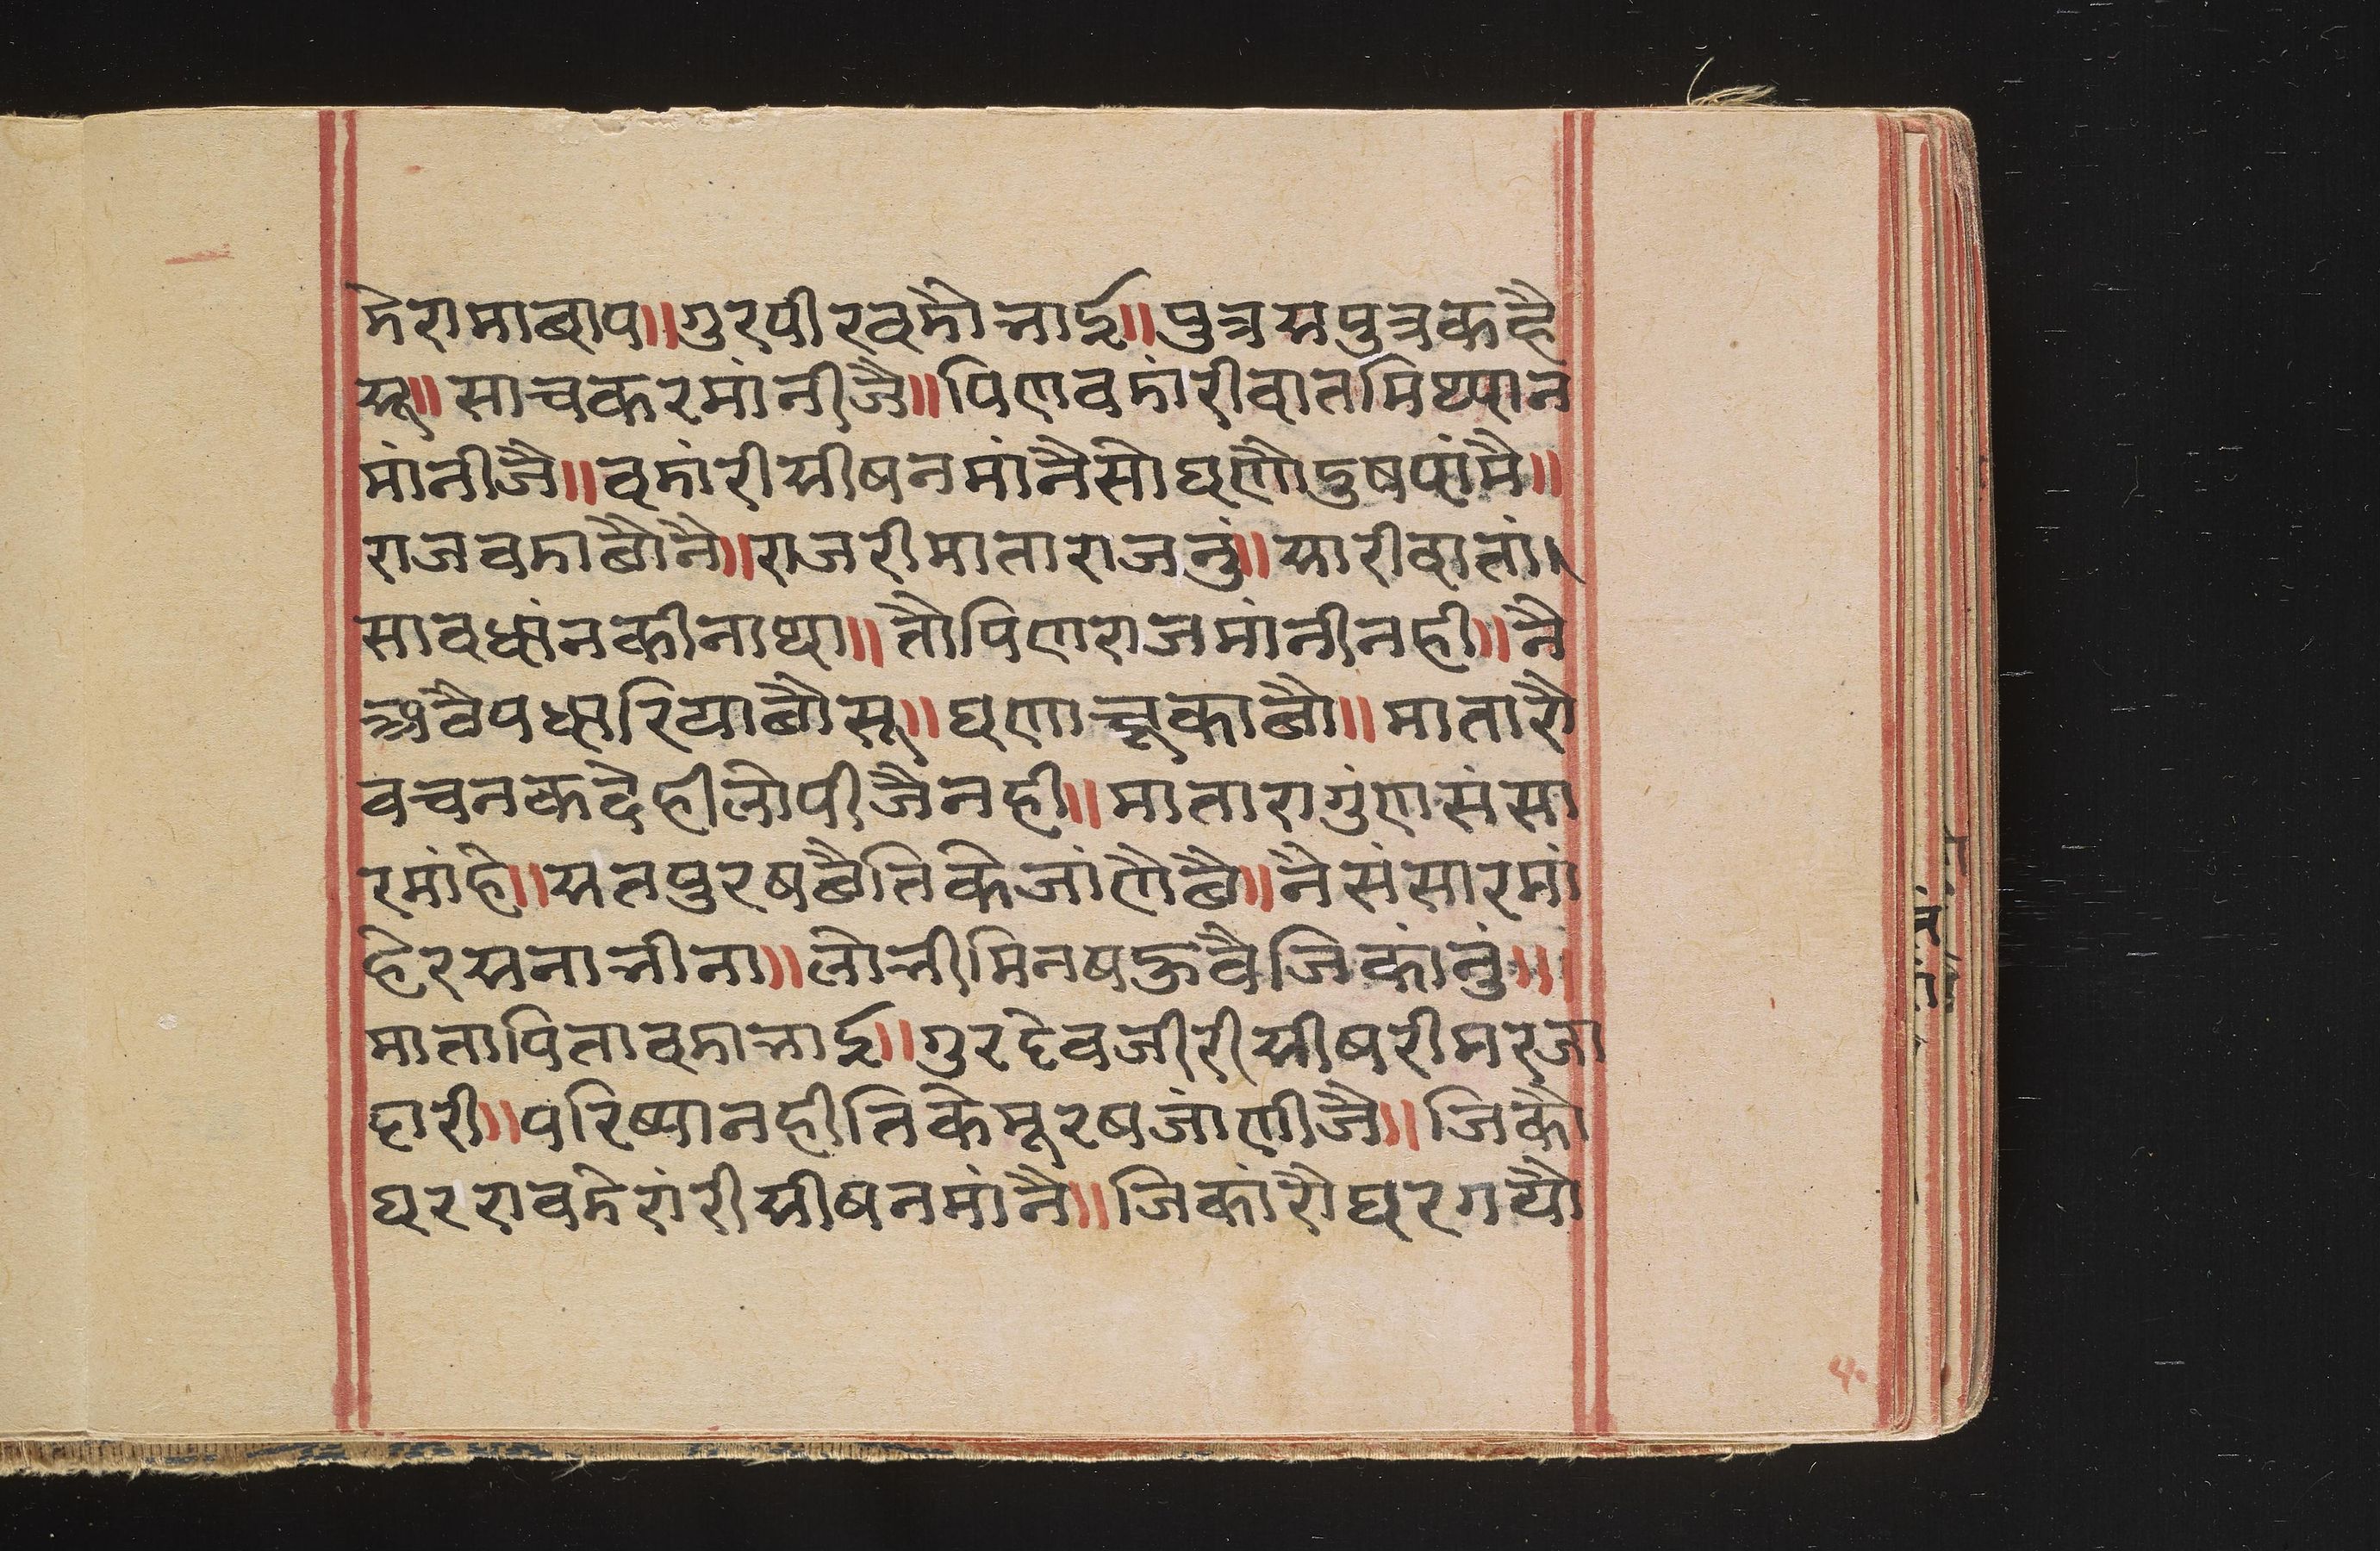 मेरा मा बाप॥ गुर पीर वमौ भाई॥ पुत्र सपुत्र कहै
सू॥ साच कर मांनीजै॥ पिण वडांरी वात मिथ्या न
मांनीजै॥ वडांरी सीष न मांनै सो घणौ दुष पांमै॥
राज वडा छौ नै॥ राजरी माता राजनुं॥ सारी वातां।
सावधांन कीना था॥ तौ पिण राज मांनी नही॥ नै
अवै पधारिया छौ सू॥ घणा चूका छौ॥ मातारौ
वचन कदेही लोपीजै नही॥ माता रा गुंण संसा
रमांहे॥ सतपुरष छै तिके जांणै छै॥ नै संसारमां
हे रस ना भीना॥ लोभी मिनष हुवै जिकांनुं॥
माता पिता वडा भाई॥ गुरदेवजीरी सीषरी मरजा
दारी॥ परिष्या नही तिके मूरष जांणीजै॥ जिकौ
घररा वडेरांरी सीष न मांनै॥ जिकांरौ घर गयौ